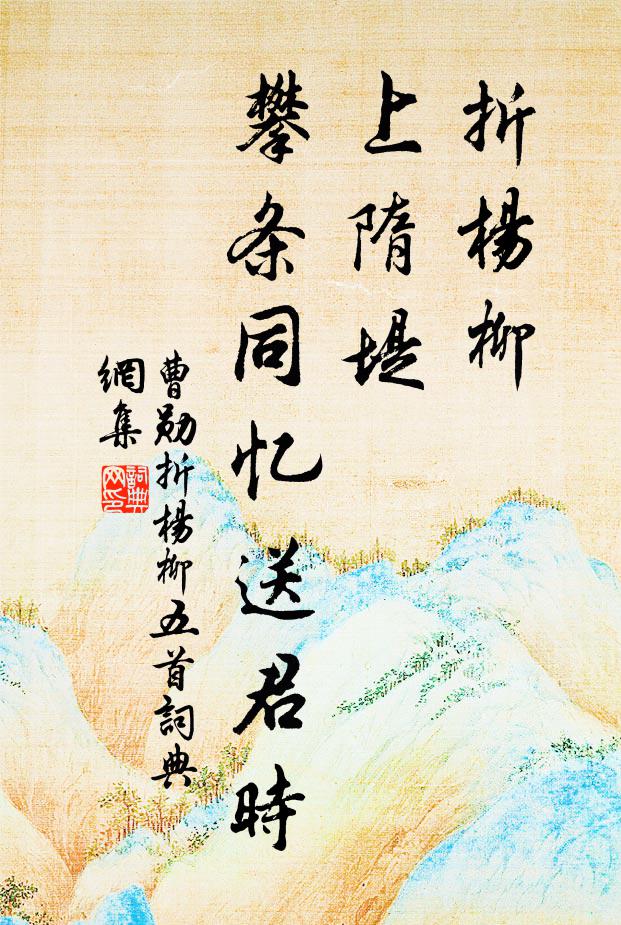 折楊柳
上隋堤
攀条同忆送君時
曹勋折楊柳五首詞典
網集
詞典
网印